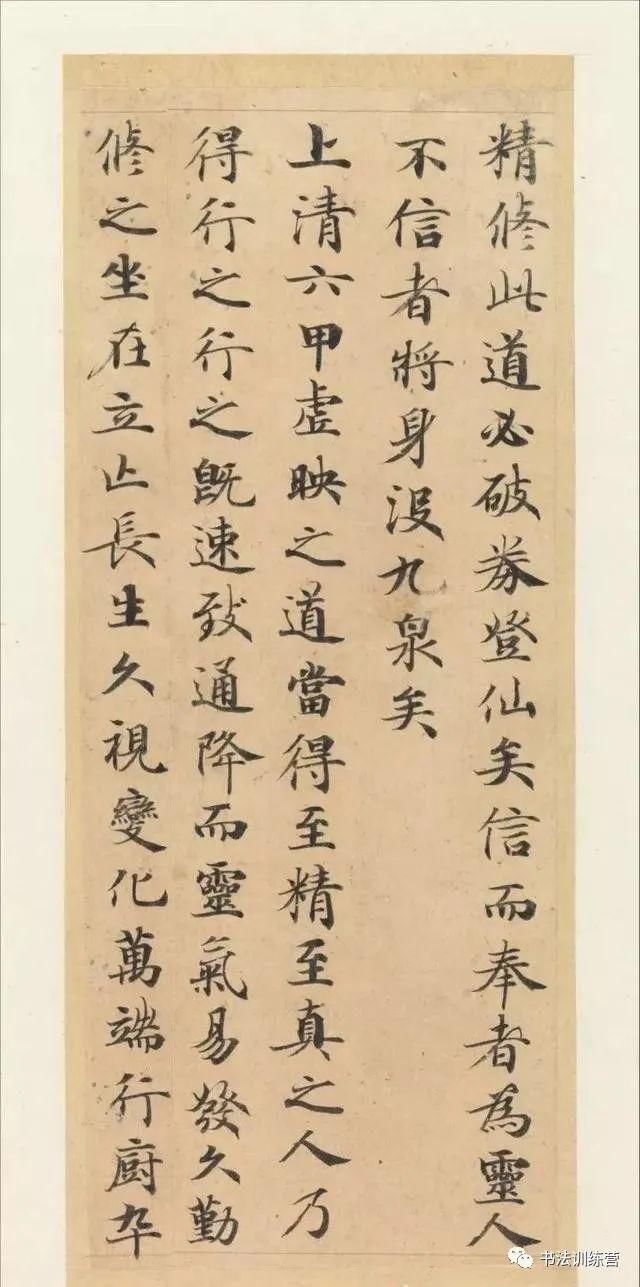 精修此道必破券登仙矣信而奉者為靈人
不信者將身没九泉矣
上清六甲虛映之道當得至精至真之人乃
得行之行之既速致通降而靈氣易發久勤
修之坐在立亾長生久視變化萬端行廚卒
书法训练营